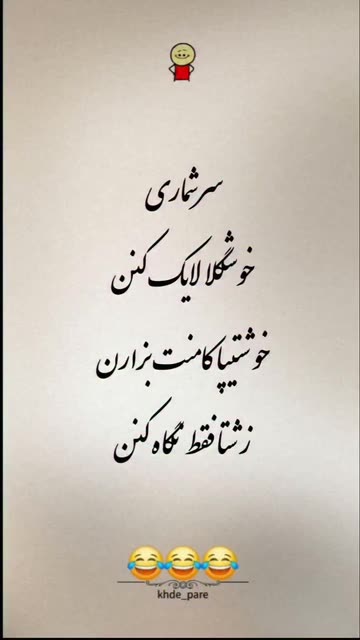 سرشماری
خوشگلا لایک کنن
خوشتیپا کامنت بزارن
زشتا فقط نگاه کنن
😂😂😂
khde_pare